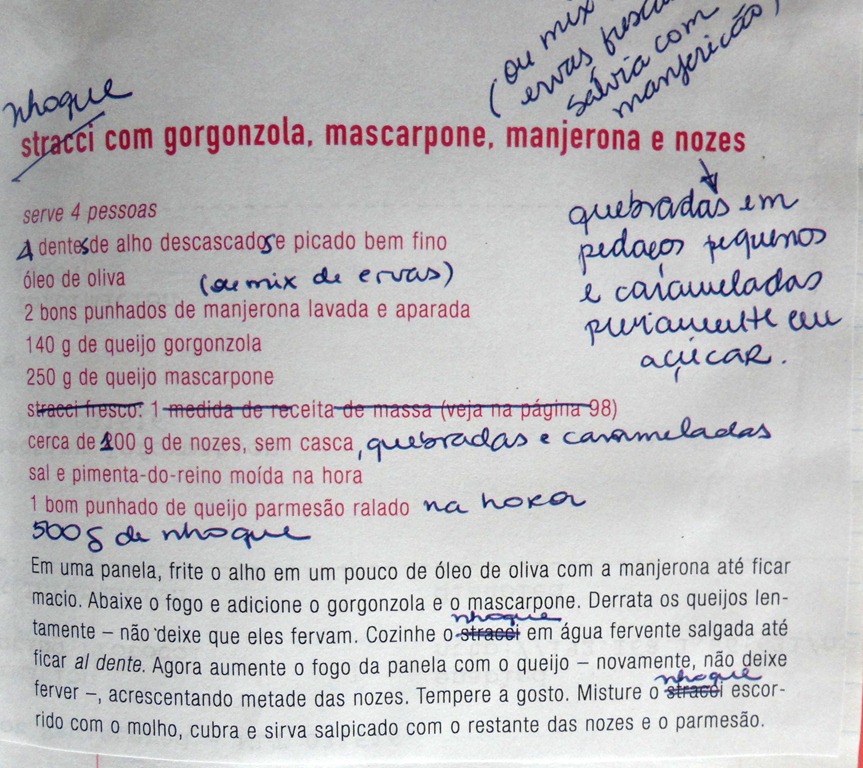 (ou mix
ervas frescas
sálvia com
manjericão)
nhoque
stracci com gorgonzola, mascarpone, manjerona e nozes
quebradas em
pedaços pequenos
e carameladas
previamente em
açúcar.
serve 4 pessoas
4 dentes de alho descascados e picado bem fino
óleo de oliva
(ou mix de ervas)
2 bons punhados de manjerona lavada e aparada
140 g de queijo gorgonzola
250 g de queijo mascarpone
stracci fresco: 1 medida de receita de massa (veja na página 98)
cerca de 200 g de nozes, sem casca, quebradas e carameladas
sal e pimenta-do-reino moída na hora
1 bom punhado de queijo parmesão ralado na hora
500g de nhoque
Em uma panela, frite o alho em um pouco de óleo de oliva com a manjerona até ficar
macio. Abaixe o fogo e adicione o gorgonzola e o mascarpone. Derrata os queijos len-
nhoque
tamente – não deixe que eles fervam. Cozinhe o stracci em água fervente salgada até
ficar al dente. Agora aumente o fogo da panela com o queijo – novamente, não deixe
nhoque
ferver –, acrescentando metade das nozes. Tempere a gosto. Misture o stracci escor-
rido com o molho, cubra e sirva salpicado com o restante das nozes e o parmesão.